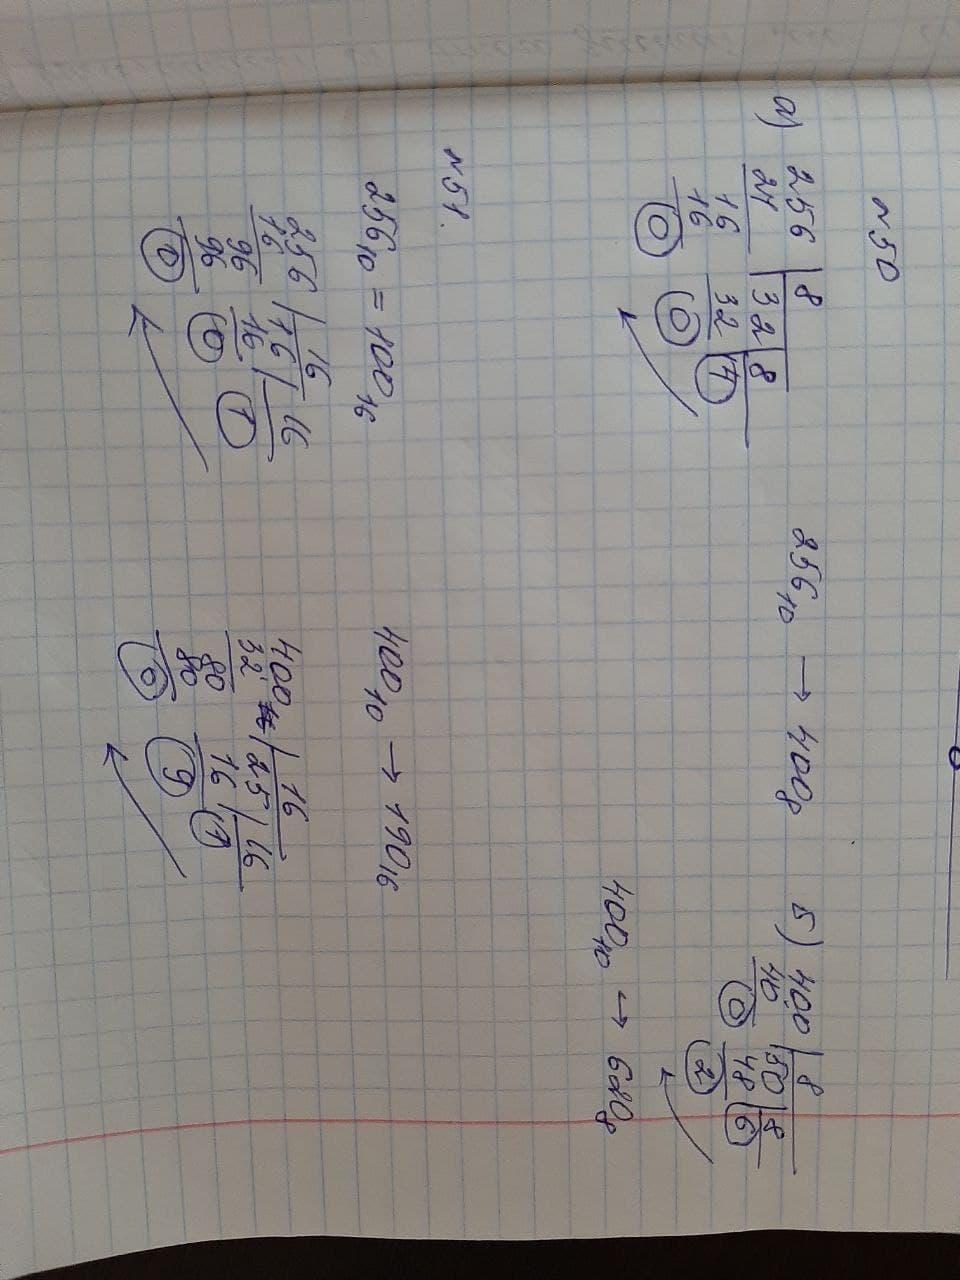 №50
а) 256 | 8
24 | 32 | 8
16 32 4
16 0
0
256₁₀ → 400₈
б) 400 | 8
40 | 50 | 8
0 48 6
2
400₁₀ → 620₈
№51.
256₁₀ = 100₁₆
256 | 16
16 | 16 | 16
96 16 1
96 0
0
400₁₀ → 190₁₆
400 | 16
32 | 25 | 16
80 16 1
80 9
0